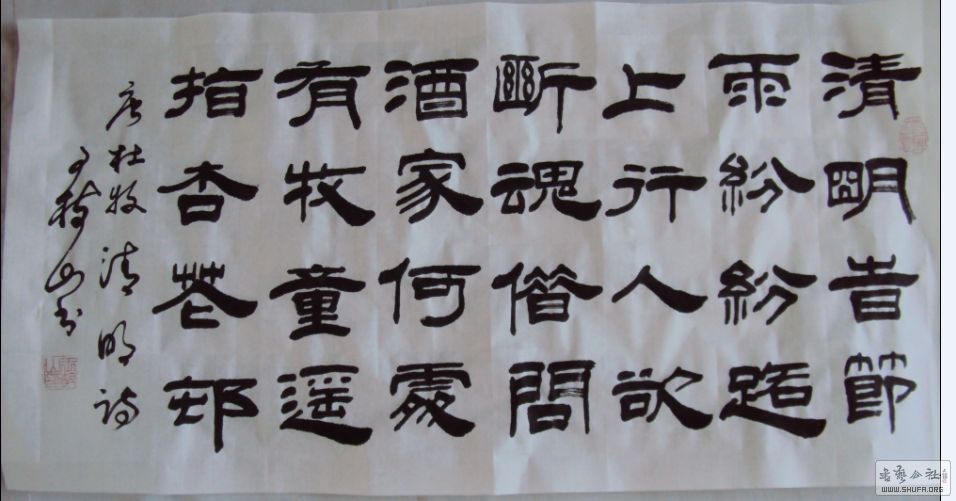 清朙旹節
雨紛紛路
上行人欲
斷魂借問
酒家何處
有牧童遥
指杏花邨
唐杜牧清明诗
山书
书艺公社
WWW.SHUFA.ORG